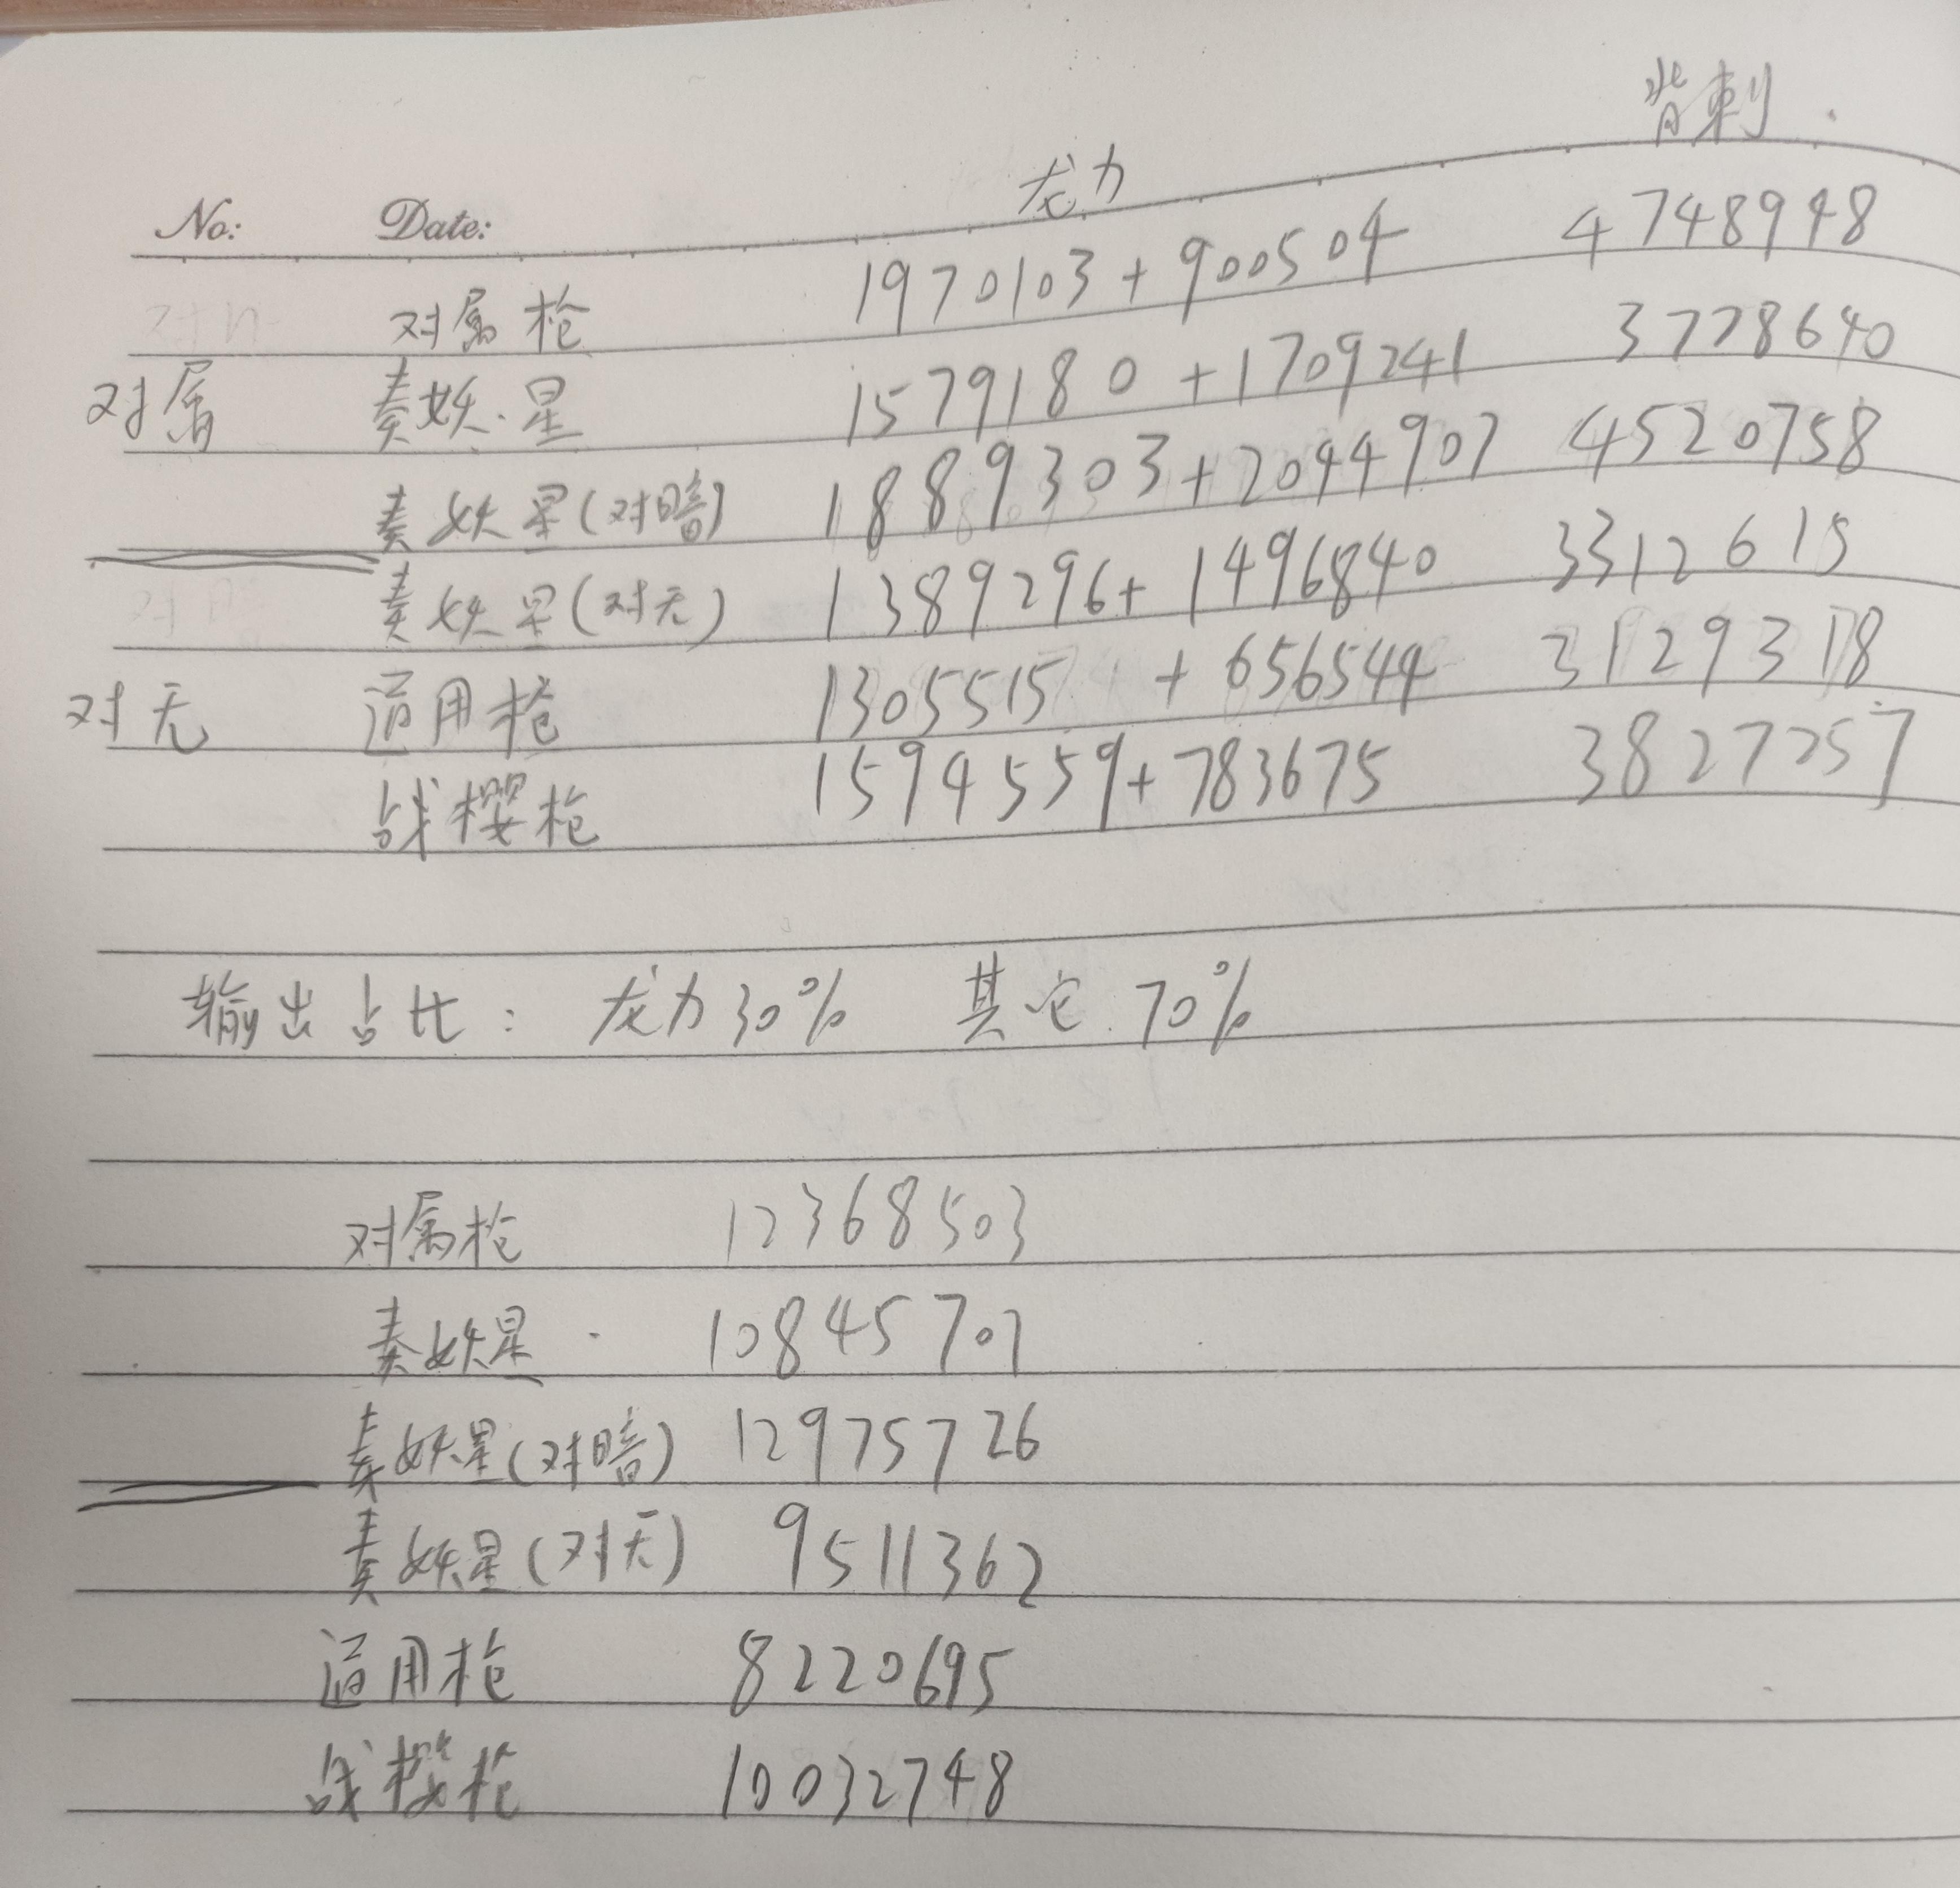 背刺
龙力
No: Date:
对属枪 1970103+900504 4748948
对属 奏妖星 1579180+1709241 3778640
奏妖星(对暗) 1889303+2044907 4520758
奏妖星(对无) 1389296+1496840 3312615
对无 通用枪 1305515+656544 3129318
战樱枪 1594559+783675 3827257
输出占比: 龙力30% 其它70%
对属枪 12368503
奏妖星 10845707
奏妖星(对暗) 12975726
奏妖星(对无) 9511362
通用枪 8220695
战樱枪 10032748